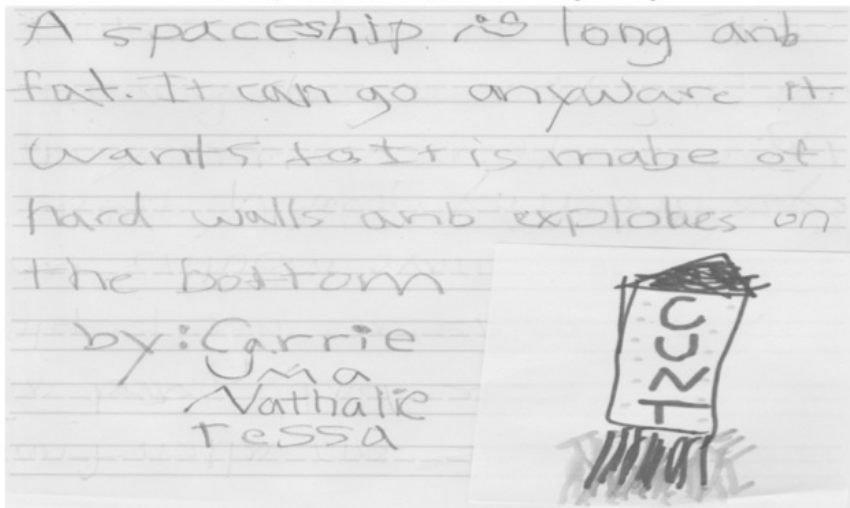 A spaceship is long anb
fat. It can go anyware it
wants to. It is mabe of
hard walls anb explobes on
the bottom
by: Carrie
Uma
Nathalie
Tessa
C
U
N
T